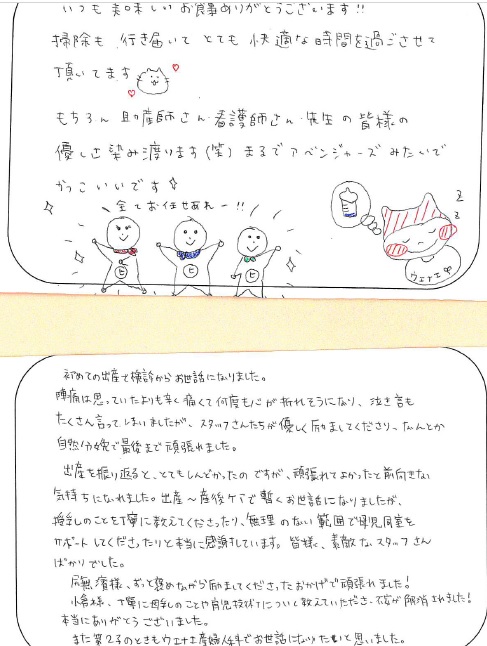 いつも美味しいお食事ありがとうございます!!
掃除も行き届いてとても快適な時間を過ごさせて
頂いてます
もちろん助産師さん・看護師さん・先生の皆様の
優しさ染み渡ります(笑)まるでアベンジャーズみたいで
かっこいいです
全てお任せあれー!!
ヒ ヒ ヒ
z z
ウエナエ
初めての出産で検診からお世話になりました。
陣痛は思っていたよりも辛く痛くて何度も心が折れそうになり、泣き言も
たくさん言ってしまいましたが、スタッフさんたちが優しく励ましてくださり、なんとか
自然分娩で最後まで頑張れました。
出産を振り返ると、とてもしんどかったのですが、頑張れてよかったと前向きな
気持ちになれました。出産〜産後ケアで暫くお世話になりましたが、
授乳のことを丁寧に教えてくださったり、無理のない範囲で母児同室を
サポートしてくださったりと本当に感謝しています。皆様、素敵なスタッフさん
ばかりでした。
様、ずっと褒めながら励ましてくださったおかげで頑張れました!
小倉様、丁寧に母乳のことや育児技術について教えていただき不安が解消されました!
本当にありがとうございました。
また第2子のときもウエナエ産婦人科でお世話になりたいと思いました。